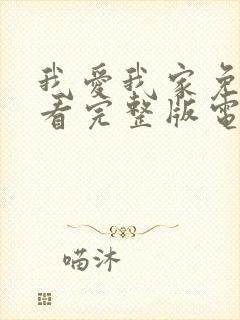 我愛我家免
看完整版電
喵沐